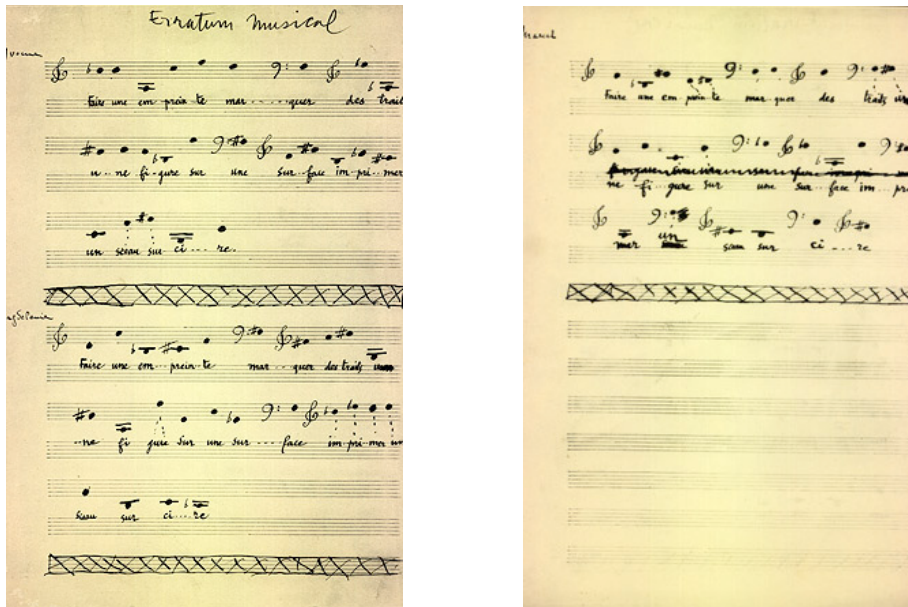 Erratum Musical
Yvonne
Faire une em prein te mar....quer des traits
u...ne fi-gure sur une sur..face im..pri..mer
un sceau sur ci....re.
Magdeleine
Faire une em...prein..te mar...quer des traits
..ne fi gure sur une sur....face im pri mer un
sceau sur ci....re
Marcel
Faire une em..prein te mar..quer des traits
ne fi..gure sur une sur..face im..pri
mer un sceau sur ci....re